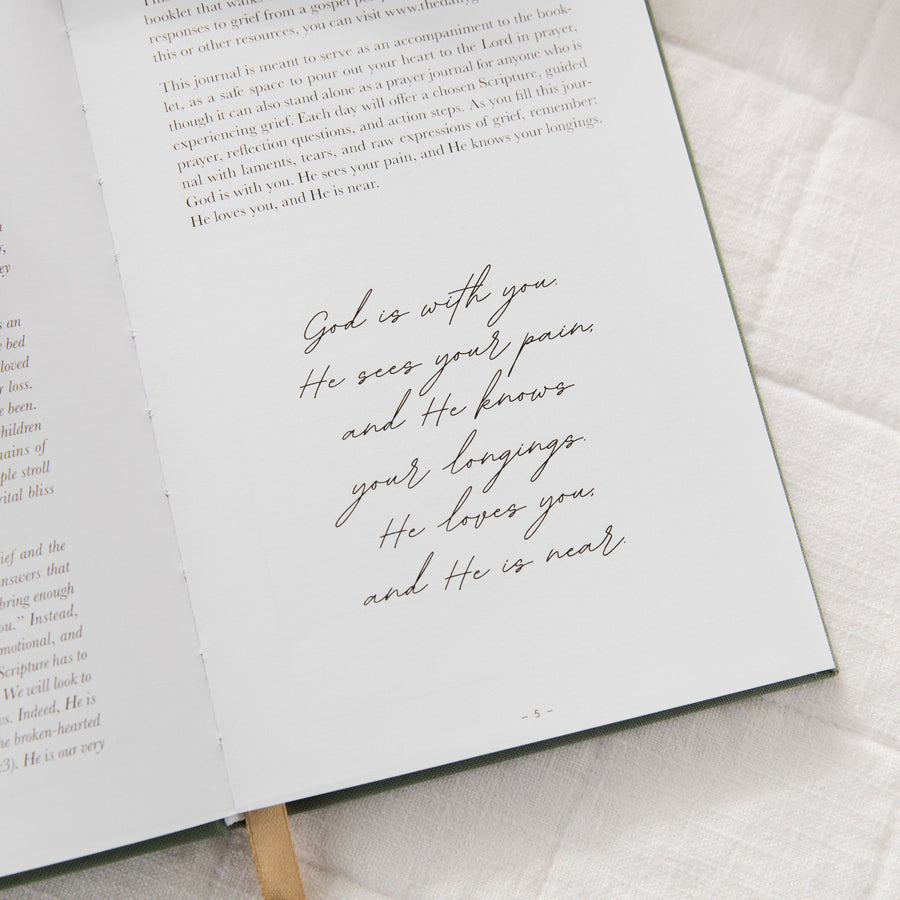 s an
e bed
loved
r loss.
e been.
children
nains of
ple stroll
rital bliss
ief and the
nswers that
bring enough
ou.” Instead,
motional, and
Scripture has to
We will look to
es. Indeed, He is
he broken-hearted
:3). He is our very
booklet that
responses to grief from a gospel
this or other resources, you can visit
This journal is meant to serve as an accompaniment to the book-
let, as a safe space to pour out your heart to the Lord in prayer,
though it can also stand alone as a prayer journal for anyone who is
experiencing grief. Each day will offer a chosen Scripture, guided
prayer, reflection questions, and action steps. As you fill this jour-
nal with laments, tears, and raw expressions of grief, remember:
God is with you. He sees your pain, and He knows your longings.
He loves you, and He is near.
God is with you.
He sees your pain,
and He knows
your longings.
He loves you,
and He is near.
– 5 –